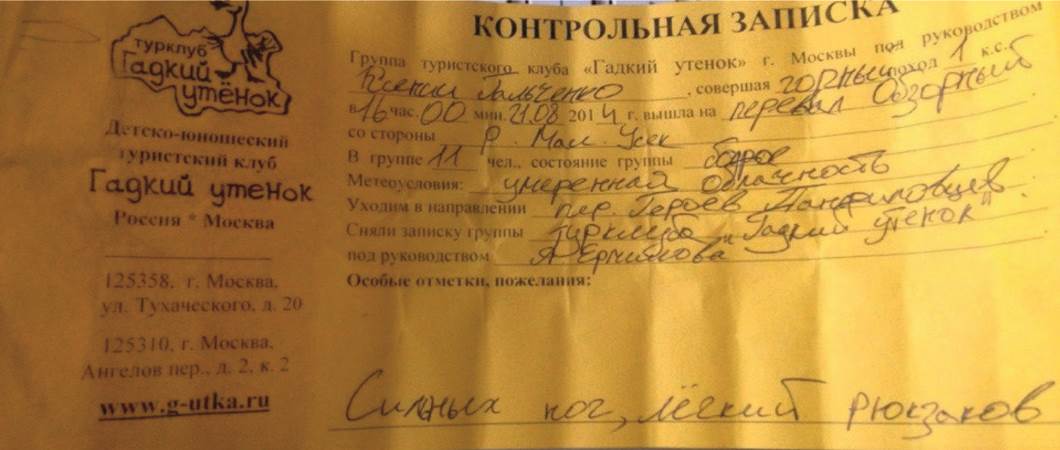 турклуб
Гадкий
утёнок
Детско-юношеский
туристский клуб
Гадкий утенок
Россия * Москва
125358, г. Москва,
ул. Тухаческого, д. 20
125310, г. Москва,
Ангелов пер., д. 2, к. 2
www.g-utka.ru
КОНТРОЛЬНАЯ ЗАПИСКА
Группа туристского клуба «Гадкий утенок» г. Москвы под руководством
Гальченко, совершая горный поход 1 к.с.
в 16 час. 00 мин. 21.08 2014 г. вышла на перевал Обзорный
со стороны р. Мал. Усек
В группе 11 чел., состояние группы бодрое
Метеоусловия: умеренная облачность
Уходим в направлении пер. Героев Панфиловцев
Сняли записку группы турклуба "Гадкий утенок"
под руководством
Особые отметки, пожелания:
Сильных ног, лёгкий рюкзаков